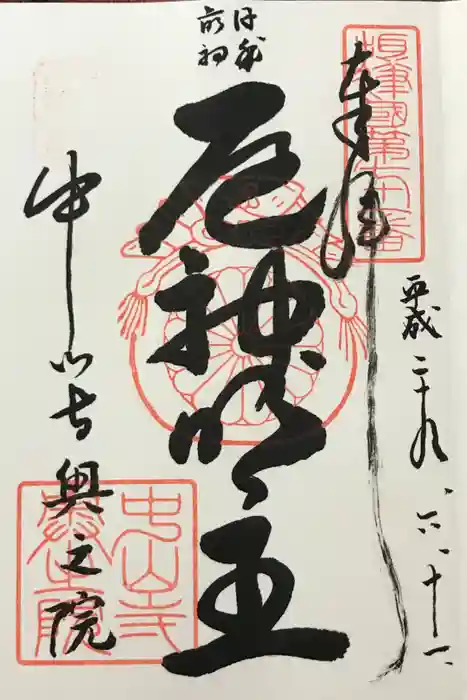 奉拝
平成二十九、六、十一
日本
最初
厄神明王
中山寺奥之院
中山寺
奥之院